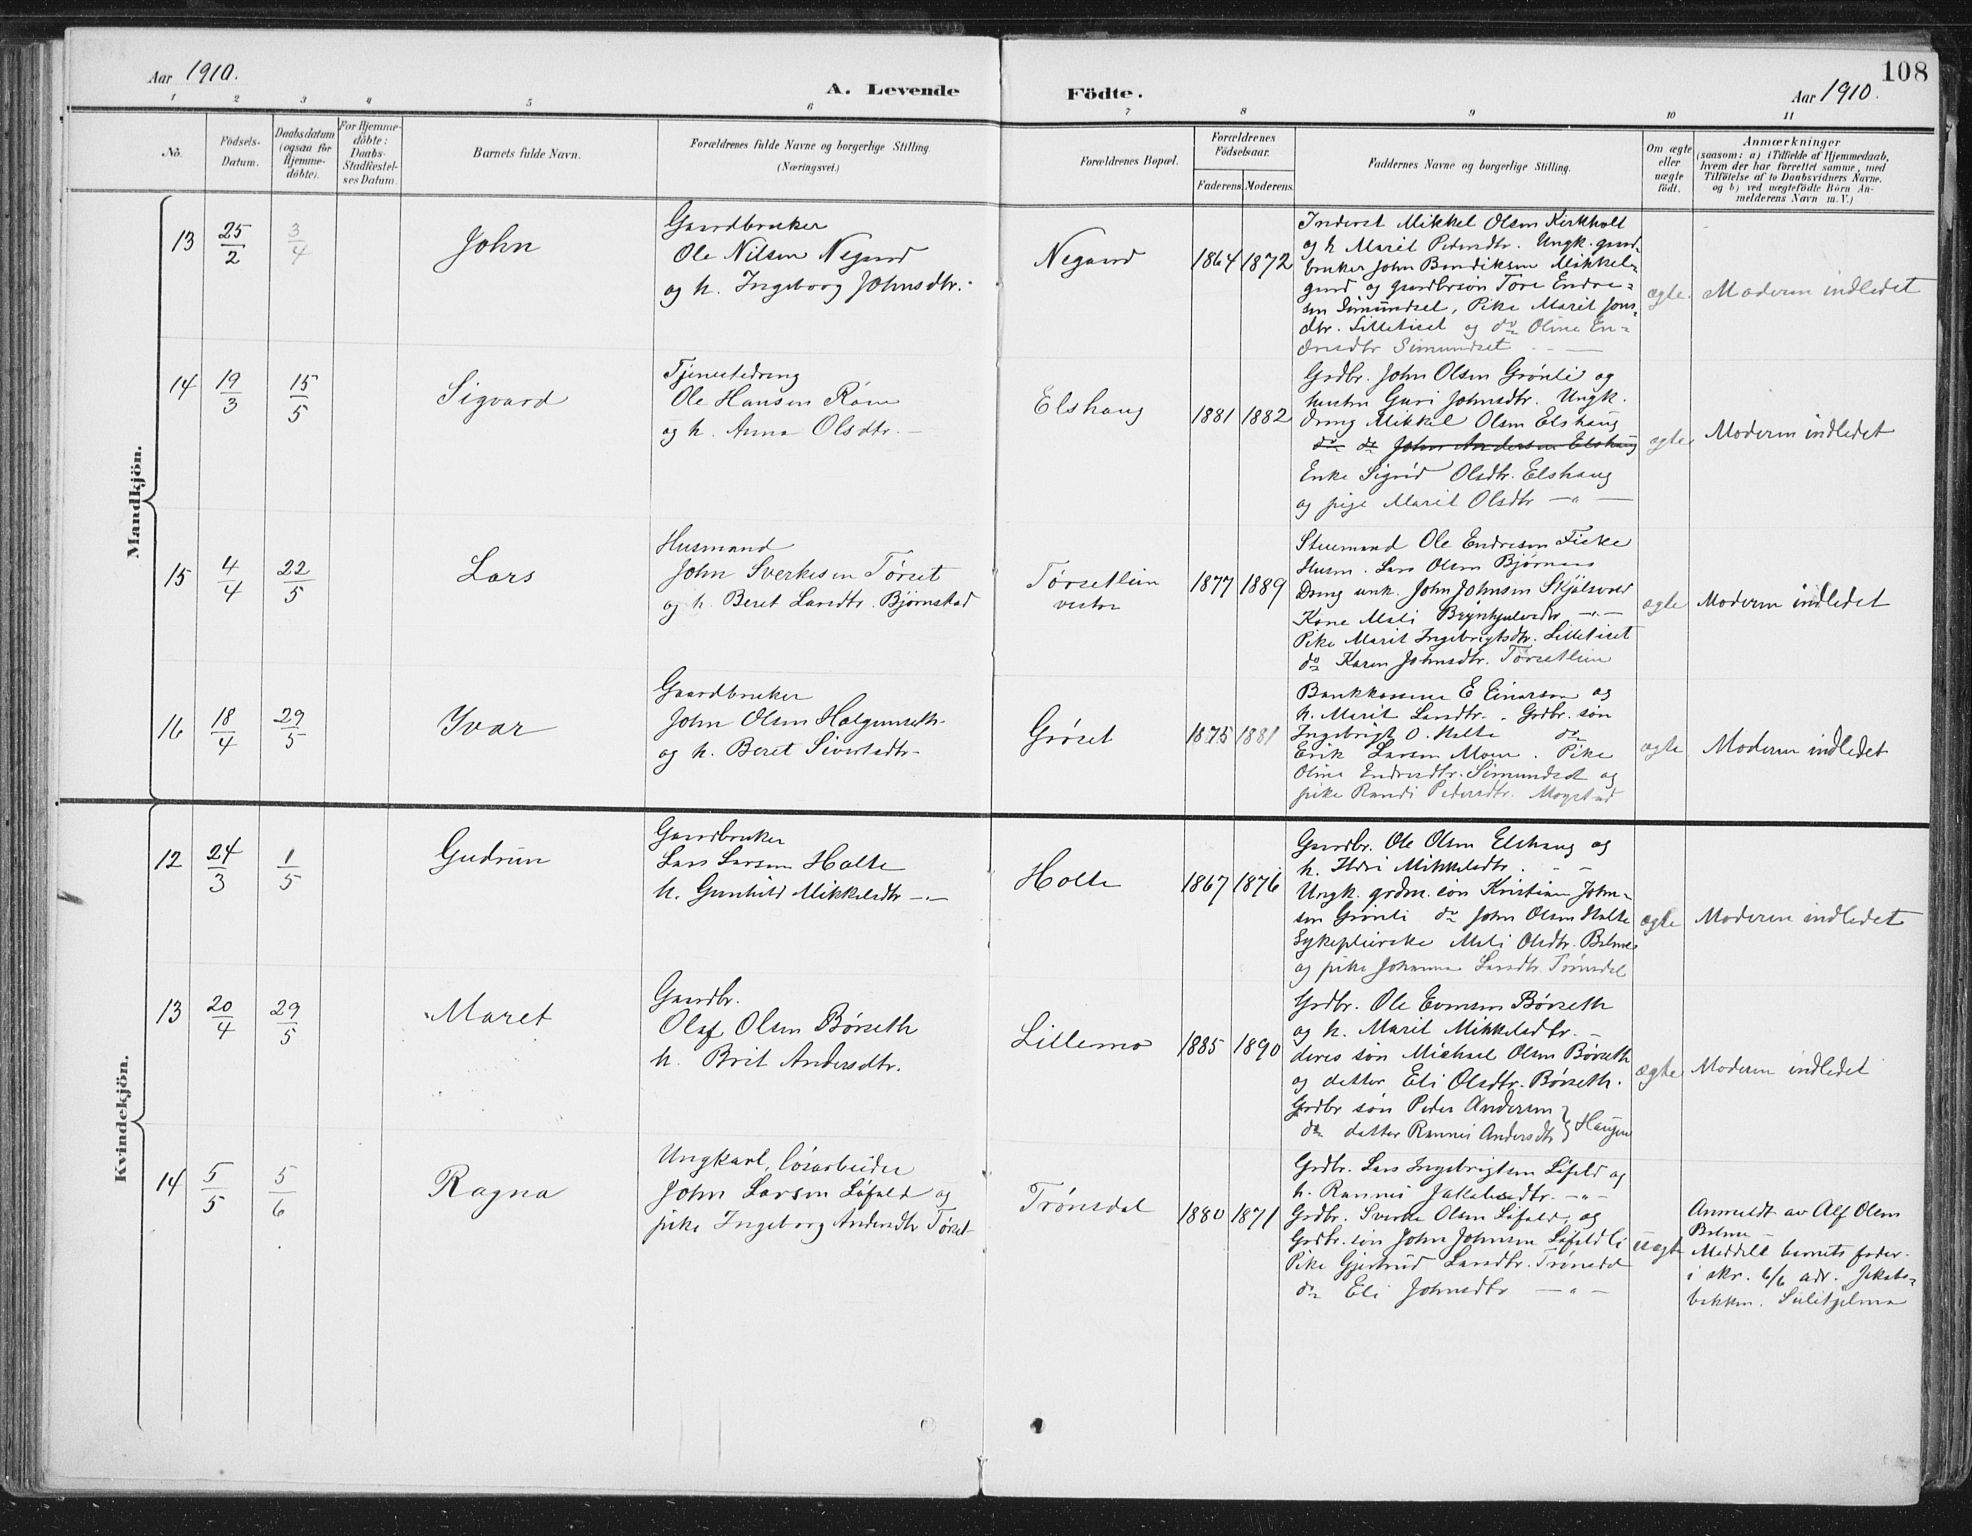 Aar 1910.
A. Levende Födte.
Aar 1910.
108
1 2 3 4 5 6 7 8 9 10 11
No.
Födsels-
Datum.
Daabsdatum
(ogsaa for
Hjemme-
döbte).
For Hjemme-
döbte:
Daabs-
Stadfæstel-
ses Datum.
Barnets fulde Navn.
Forældrenes fulde Navne og borgerlige Stilling.
(Næringsvei.)
Forældrenes Bopæl.
Forældrenes
Födselsaar.
Faderens. Moderens.
Faddernes Navne og borgerlige Stilling.
Om ægte
eller
uægte
födt.
Anmærkninger
(saasom: a) i Tilfælde af Hjemmedaab,
hvem der har forrettet samme, med
Tilföielse af to Daabsvidners Navne.
og b) ved uægtefödte Börn An-
melderens Navn m. V.)
Mandkjön.
13
25/2
3/4
John
Gaardbruker
Ole Nilsen Negaard
og h. Ingeborg Johnsdtr.
Negaard
1864 1872
Inderst Mikkel Olsen Kirkholt
og h. Marit Pedersdtr. Ungk. gaard-
bruker John Bendiksen Mikkel-
gard og gaardbrsön Tore Endre-
sen Simundset, Pike Marit Jons-
dtr. Lilletiset og do Oline En-
dresdtr Simundset
ægte.
Moderen indledet
14
19/3
15/5
Sigvard
Tjenestedreng
Ole Hansen Röen
og h. Anna Olsdtr. —
Elshaug
1881 1882
Grdbr. John Olsen Grönli og
hustru Guri Johnsdtr. Ungk.
dreng Mikkel Olsen Elshaug
do do John Andersen Elshaug
Enke Sigrid Olsdtr. Elshaug
og pige Marit Olsdtr — " —
ægte
Moderen indledet
15
4/4
22/5
Lars
Husmand
John Sverkesen Törset
og h. Beret Larsdtr. Bjørnstad
Tørsetlien
vestre
1877 1889
Stuemand Ole Endresen Fiske
Husm. Lars Olsen Bjørnaas
Dreng unk. John Johnsen Skjølsvold
Kone Mali Brynhjulvsdtr. — " —
Pike Marit Ingebrigtsdtr. Lilletiset
do Karen Johnsdtr. Tørsetlien
ægte
Moderen indledet
16
18/4
29/5
Yvar
Gaardbruker
John Olsen Halgunseth
og h. Beret Sivertsdtr-
Grøset
1875 1881
Bankkasserer E Einarsen og
h. Marit Larsdtr. Grdbr. søn
Ingebrigt O. Halte do
Erik Larsen Moen. Pike
Oline Endresdtr. Simundset og
pike Randi Pedersdtr. Mogstad
ægte
Moderen indledet
Kvindekjön.
12
24/3
1/5
Gudrun
Gaardbruker
Lars Larsen Holte
h. Gunhild Mikkelsdtr —"—
Holte
1867 1876
Gaardbr. Ole Olsen Elshaug og
h. Ildri Mikkelsdtr. - -
Ungk. grdm. sön Kristian John-
sen Grönli do John Olsen Halte
Sykepleierske Mali Olsdtr. Bolme
og pike Johanna Larsdtr. Trönsdal
ægte
Moderen indledet
13
20/4
29/5
Maret
Gaardbr.
Olaf Olsen Børseth
h. Brit Andersdtr.
Lillemo
1885 1890
Grdbr. Ole Evensen Børseth
og h. Marit Mikkelsdtr. —
deres søn Michael Olsen Børseth
og datter Eli Olsdtr. Børseth.
Grdbr søn Peder Andersen
do datter Rannei Andersdtr } Haugen
ægte
Moderen indledet
14
5/5
5/6
Ragna
Ungkarl, løsarbeider
John Larsen Löfald og
pike Ingeborg Andersdtr Tørset-
Trönsdal
1880 1871
Grdbr. Lars Ingebrigtsen Löfald og
h. Rannei Jakobsdtr. — " —
Grdbr. Sverke Olsen Löfald, og
Grdbr. søn John Johnsen Löfaldli
Pike Gjertrud Larsdtr. Trönsdal
do Eli Johnsdtr — " —
uægte
Anmeldt av Alf Olsen
Bolme —
Meddelt barnets fader
i skr. 6/6 adr. Jakobs-
bakken. Sulitjelma